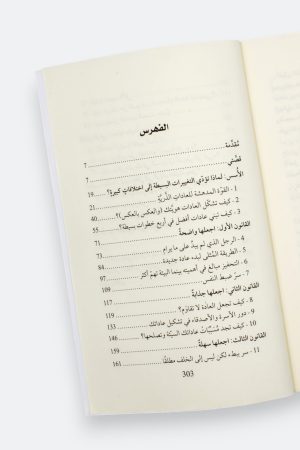 الفهرس
مُقدِّمة 7
قصَّتي 7
الأُسس: لماذا تؤدّي التغييرات البسيطة إلى اختلافاتٍ كبيرة؟ 19
1 - القوَّة المدهشة للعادات الذَّرِّيَّة 21
2 - كيف تشكِّل العادات هويَّتك (والعكس بالعكس)؟ 40
3 - كيف تبني عادات أفضل في أربع خطوات بسيطة؟ 55
القانون الأول: اجعلها واضحةً 71
4 - الرجل الذي لم يبدُ على ما يرام 73
5 - الطريقة المُثلى لبدء عادة جديدة 84
6 - التحفيز مبالغ في أهميته بينما البيئة تهمّ أكثر 97
7 - سرّ ضبط النفس 109
القانون الثاني: اجعلها جذابةً 117
8 - كيف تجعل العادة لا تقاوَم؟ 119
9 - دور الأسرة والأصدقاء في تشكيل عاداتك 133
10 - كيف تجد مُسبِّبات عاداتك السيِّئة وتصلحها؟ 146
القانون الثالث: اجعلها سهلةً 159
11 - سر ببطء لكن ليس إلى الخلف مطلقًا 161
303